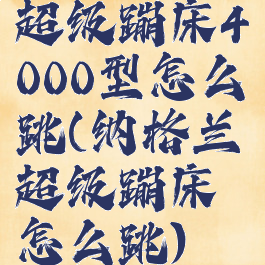 超级蹦床4
000型怎么
跳(纳格兰
超级蹦床
怎么跳)